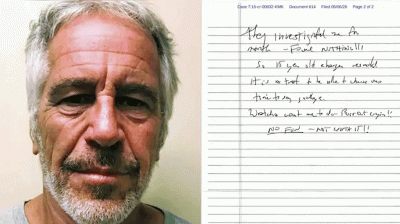 Case 7:16-cr-00832-KMK Document 614 Filed 05/06/26 Page 2 of 2
They investigated me for
month — Found NOTHING!!!
So 15 year old charges
It is a treat to be able to choose
time to say goodbye.
want me to do — Burst out crying!!
NO FUN — NOT WORTH IT!!